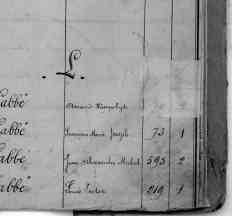 L.
Labbé
Labbé Marie Joseph 73 1
Labbé Jean Alexandre Michel 595 2
Labbé Louis Victor 219 1